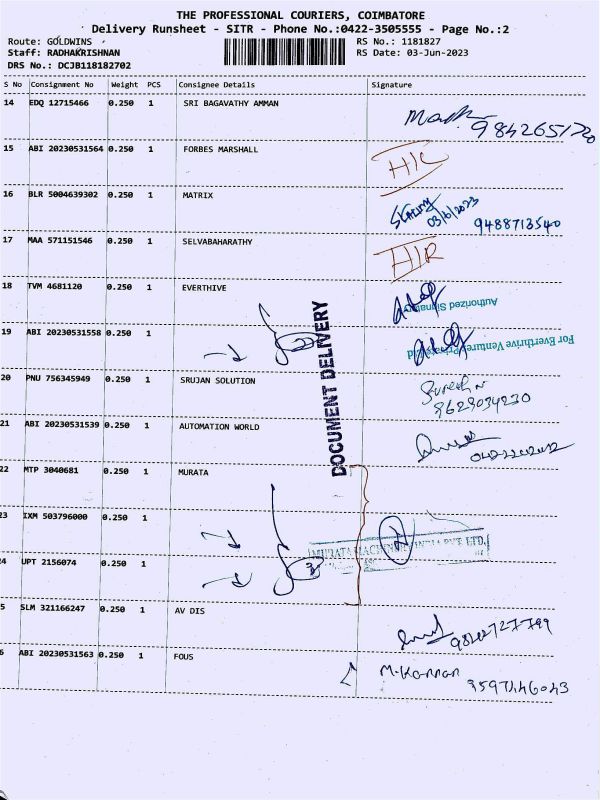 THE PROFESSIONAL COURIERS, COIMBATORE
Delivery Runsheet - SITR - Phone No.:0422-3505555 - Page No.:2
Route: GOLDWINS
RS No.: 1181827
Staff: RADHAKRISHNAN
RS Date: 03-Jun-2023
DRS No.: DCJB118182702
S No Consignment No Weight PCS Consignee Details Signature
14 EDQ 12715466 0.250 1 SRI BAGAVATHY AMMAN
9842651720
15 ABI 20230531564 0.250 1 FORBES MARSHALL
16 BLR 5004639302 0.250 1 MATRIX
03/6/2023
9488713540
17 MAA 571151546 0.250 1 SELVABAHARATHY
H/R
18 TVM 4681120 0.250 1 EVERTHIVE
Authorized Signatory
19 ABI 20230531558 0.250 1
For Everthrive Venture Private Ltd
DOCUMENT DELIVERY
20 PNU 756345949 0.250 1 SRUJAN SOLUTION
Suresh N
9629034230
21 ABI 20230531539 0.250 1 AUTOMATION WORLD
22 MTP 3040681 0.250 1 MURATA
23 IXM 503796000 0.250 1
MURATA MACHINERY INDIA PVT LTD.
24 UPT 2156074 0.250 1
5 SLM 321166247 0.250 1 AV DIS
6 ABI 20230531563 0.250 1 FOUS
M.Kannan
9597446043